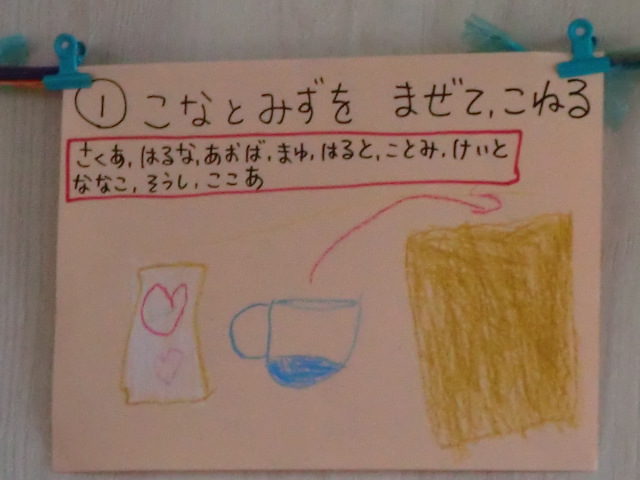 ① こなとみずを まぜて,こねる
さくあ,はるな,あおば,まゆ,はると,ことみ,けいと
ななこ,そうし,ここあ